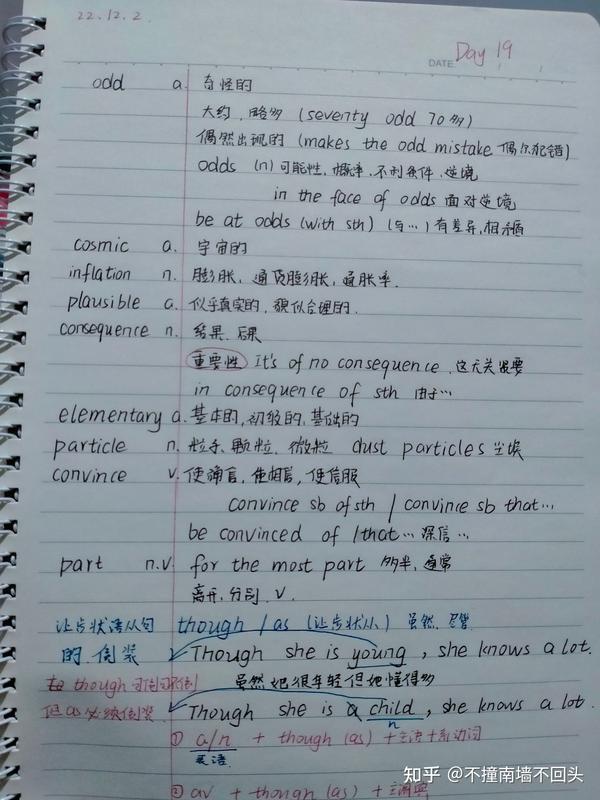 22.12.2
DATE Day 19
odd a. 奇怪的
大约,略多 (seventy odd 70多)
偶然出现的 (makes the odd mistake 偶尔犯错)
odds (n) 可能性, 概率, 不利条件, 逆境
in the face of odds 面对逆境
be at odds (with sth) (与…) 有差异,相矛盾
cosmic a. 宇宙的
inflation n. 膨胀, 通货膨胀, 通胀率.
plausible a. 似乎真实的, 貌似合理的.
consequence n. 结果, 后果
重要性 It's of no consequence. 这无关紧要
in consequence of sth 由于…
elementary a. 基本的, 初级的, 基础的
particle n. 粒子, 颗粒, 微粒 dust particles 尘埃
convince v. 使确信, 使相信, 使信服
convince sb of sth / convince sb that…
be convinced of / that… 深信…
part n.v. for the most part 多半, 通常
离开, 分别. v.
让步状语从句 though / as (让步状从) 虽然, 尽管
的 倒装 Though she is young, she knows a lot.
though可倒可不倒 虽然她很年轻但她懂得多
但as必须倒装. Though she is a child, she knows a lot.
n
① a/n + though (as) + 主语 + 系动词
表语
② av + though (as) +
知乎 @不撞南墙不回头